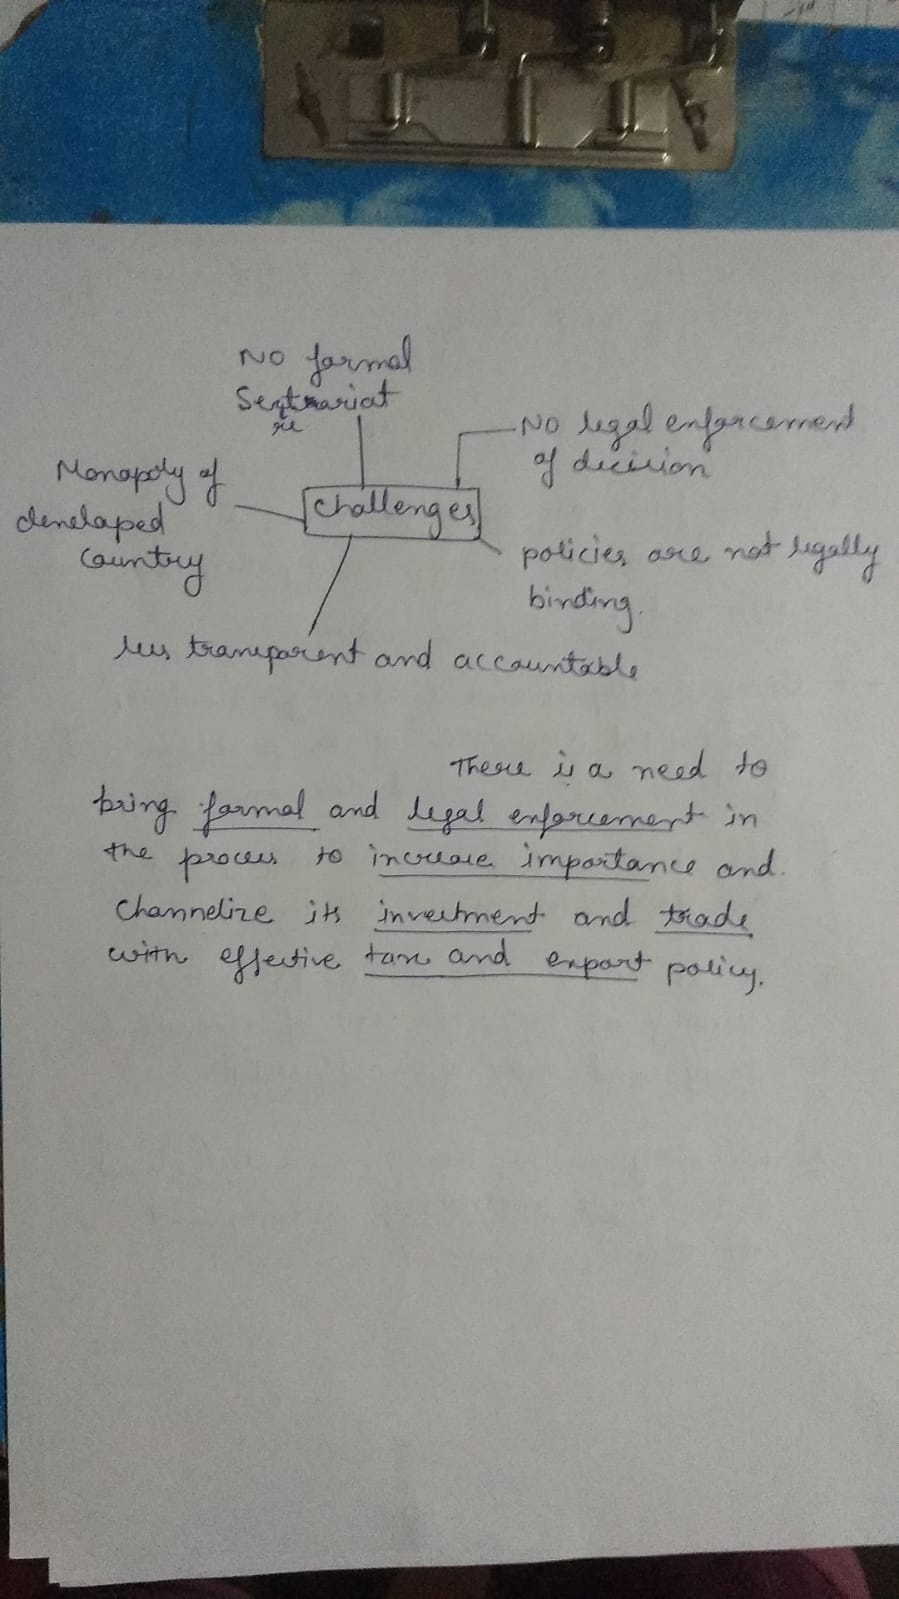 No formal
Sectrariat
re
No legal enforcement
of decision
Monopoly of
developed
country
Challenges
policies are not legally
binding.
less transparent and accountable
There is a need to
bring formal and legal enforcement in
the process to increase importance and
Channelize its investment and trade
with effective tax and export policy.